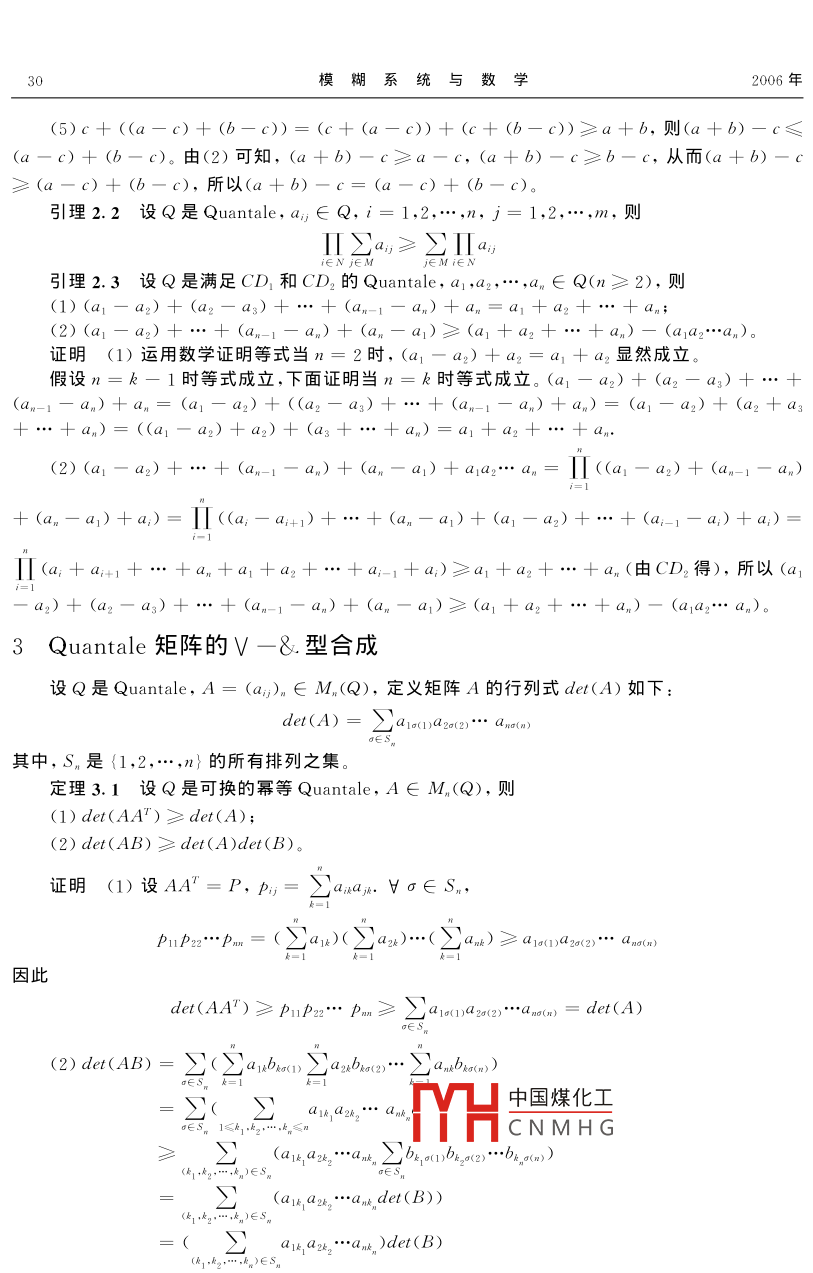 30 模 糊 系 统 与 数 学 2006 年
(5) c + ((a − c) + (b − c)) = (c + (a − c)) + (c + (b − c)) ⩾ a + b, 则(a + b) − c ⩽
(a − c) + (b − c)。由(2) 可知, (a + b) − c ⩾ a − c, (a + b) − c ⩾ b − c, 从而(a + b) − c
⩾ (a − c) + (b − c), 所以(a + b) − c = (a − c) + (b − c)。
引理 2.2 设 Q 是 Quantale, a_{ij} ∈ Q, i = 1,2,⋯,n, j = 1,2,⋯,m, 则
∏_{i∈N} ∑_{j∈M} a_{ij} ⩾ ∑_{j∈M} ∏_{i∈N} a_{ij}
引理 2.3 设 Q 是满足 CD_1 和 CD_2 的 Quantale, a_1,a_2,⋯,a_n ∈ Q(n ⩾ 2), 则
(1) (a_1 − a_2) + (a_2 − a_3) + ⋯ + (a_{n−1} − a_n) + a_n = a_1 + a_2 + ⋯ + a_n;
(2) (a_1 − a_2) + ⋯ + (a_{n−1} − a_n) + (a_n − a_1) ⩾ (a_1 + a_2 + ⋯ + a_n) − (a_1a_2⋯a_n)。
证明 (1) 运用数学证明等式当 n = 2 时, (a_1 − a_2) + a_2 = a_1 + a_2 显然成立。
假设 n = k − 1 时等式成立,下面证明当 n = k 时等式成立。(a_1 − a_2) + (a_2 − a_3) + ⋯ +
(a_{n−1} − a_n) + a_n = (a_1 − a_2) + ((a_2 − a_3) + ⋯ + (a_{n−1} − a_n) + a_n) = (a_1 − a_2) + (a_2 + a_3
+ ⋯ + a_n) = ((a_1 − a_2) + a_2) + (a_3 + ⋯ + a_n) = a_1 + a_2 + ⋯ + a_n.
(2) (a_1 − a_2) + ⋯ + (a_{n−1} − a_n) + (a_n − a_1) + a_1a_2⋯ a_n = ∏_{i=1}^{n} ((a_1 − a_2) + (a_{n−1} − a_n)
+ (a_n − a_1) + a_i) = ∏_{i=1}^{n} ((a_i − a_{i+1}) + ⋯ + (a_n − a_1) + (a_1 − a_2) + ⋯ + (a_{i−1} − a_i) + a_i) =
∏_{i=1}^{n} (a_i + a_{i+1} + ⋯ + a_n + a_1 + a_2 + ⋯ + a_{i−1} + a_i) ⩾ a_1 + a_2 + ⋯ + a_n (由 CD_2 得), 所以 (a_1
− a_2) + (a_2 − a_3) + ⋯ + (a_{n−1} − a_n) + (a_n − a_1) ⩾ (a_1 + a_2 + ⋯ + a_n) − (a_1a_2⋯ a_n)。
3 Quantale 矩阵的 ∨ −& 型合成
设 Q 是 Quantale, A = (a_{ij})_n ∈ M_n(Q), 定义矩阵 A 的行列式 det(A) 如下:
det(A) = ∑_{σ∈S_n} a_{1σ(1)}a_{2σ(2)}⋯ a_{nσ(n)}
其中, S_n 是 {1,2,⋯,n} 的所有排列之集。
定理 3.1 设 Q 是可换的幂等 Quantale, A ∈ M_n(Q), 则
(1) det(AA^T) ⩾ det(A);
(2) det(AB) ⩾ det(A)det(B)。
证明 (1) 设 AA^T = P, p_{ij} = ∑_{k=1}^{n} a_{ik}a_{jk}. ∀ σ ∈ S_n,
p_{11}p_{22}⋯p_{nn} = (∑_{k=1}^{n} a_{1k})(∑_{k=1}^{n} a_{2k})⋯(∑_{k=1}^{n} a_{nk}) ⩾ a_{1σ(1)}a_{2σ(2)}⋯ a_{nσ(n)}
因此
det(AA^T) ⩾ p_{11}p_{22}⋯ p_{nn} ⩾ ∑_{σ∈S_n} a_{1σ(1)}a_{2σ(2)}⋯a_{nσ(n)} = det(A)
(2) det(AB) = ∑_{σ∈S_n} (∑_{k=1}^{n} a_{1k}b_{kσ(1)} ∑_{k=1}^{n} a_{2k}b_{kσ(2)}⋯ ∑_{k=1}^{n} a_{nk}b_{kσ(n)})
= ∑_{σ∈S_n} (∑_{1⩽k_1,k_2,⋯,k_n⩽n} a_{1k_1}a_{2k_2}⋯ a_{nk_n}
中国煤化工
CNMHG
⩾ ∑_{(k_1,k_2,⋯,k_n)∈S_n} (a_{1k_1}a_{2k_2}⋯a_{nk_n} ∑_{σ∈S_n} b_{k_1σ(1)}b_{k_2σ(2)}⋯b_{k_nσ(n)})
= ∑_{(k_1,k_2,⋯,k_n)∈S_n} (a_{1k_1}a_{2k_2}⋯a_{nk_n}det(B))
= (∑_{(k_1,k_2,⋯,k_n)∈S_n} a_{1k_1}a_{2k_2}⋯a_{nk_n})det(B)